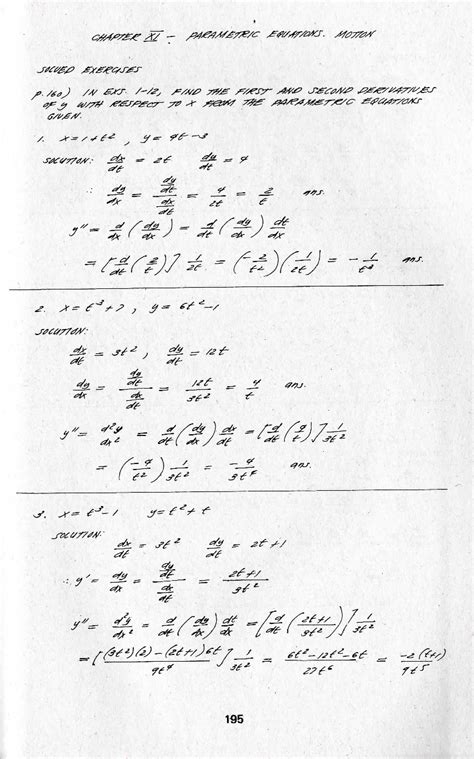 CHAPTER XI - PARAMETRIC EQUATIONS. MOTION
SOLVED EXERCISES
p.160) IN EXS. 1-12, FIND THE FIRST AND SECOND DERIVATIVES
OF y WITH RESPECT TO x FROM THE PARAMETRIC EQUATIONS
GIVEN.
1. x = 1 + t², y = 4t - 3
SOLUTION: dx/dt = 2t dy/dt = 4
∴ dy/dx = (dy/dt)/(dx/dt) = 4/2t = 2/t ans.
y" = d/dx (dy/dx) = d/dt (dy/dx) dt/dx
= [d/dt (2/t)] 1/2t = (-2/t²)(1/2t) = -1/t³ ans.
2. x = t³ + 7, y = 6t² - 1
SOLUTION:
dx/dt = 3t², dy/dt = 12t
dy/dx = (dy/dt)/(dx/dt) = 12t/3t² = 4/t ans.
y" = d²y/dx² = d/dt (dy/dx) dt/dx = [d/dt (4/t)] 1/3t²
= (-4/t²) 1/3t² = -4/3t⁴ ans.
3. x = t³ - 1 y = t² + t
SOLUTION:
dx/dt = 3t² dy/dt = 2t + 1
∴ y' = dy/dx = (dy/dt)/(dx/dt) = (2t + 1)/3t²
y" = d²y/dx² = d/dt (dy/dx) dt/dx = [d/dt ((2t + 1)/3t²)] 1/3t²
= [((3t²)(2) - (2t+1)6t)/9t⁴] 1/3t² = (6t² - 12t² - 6t)/27t⁶ = -2(t+1)/9t⁵
195